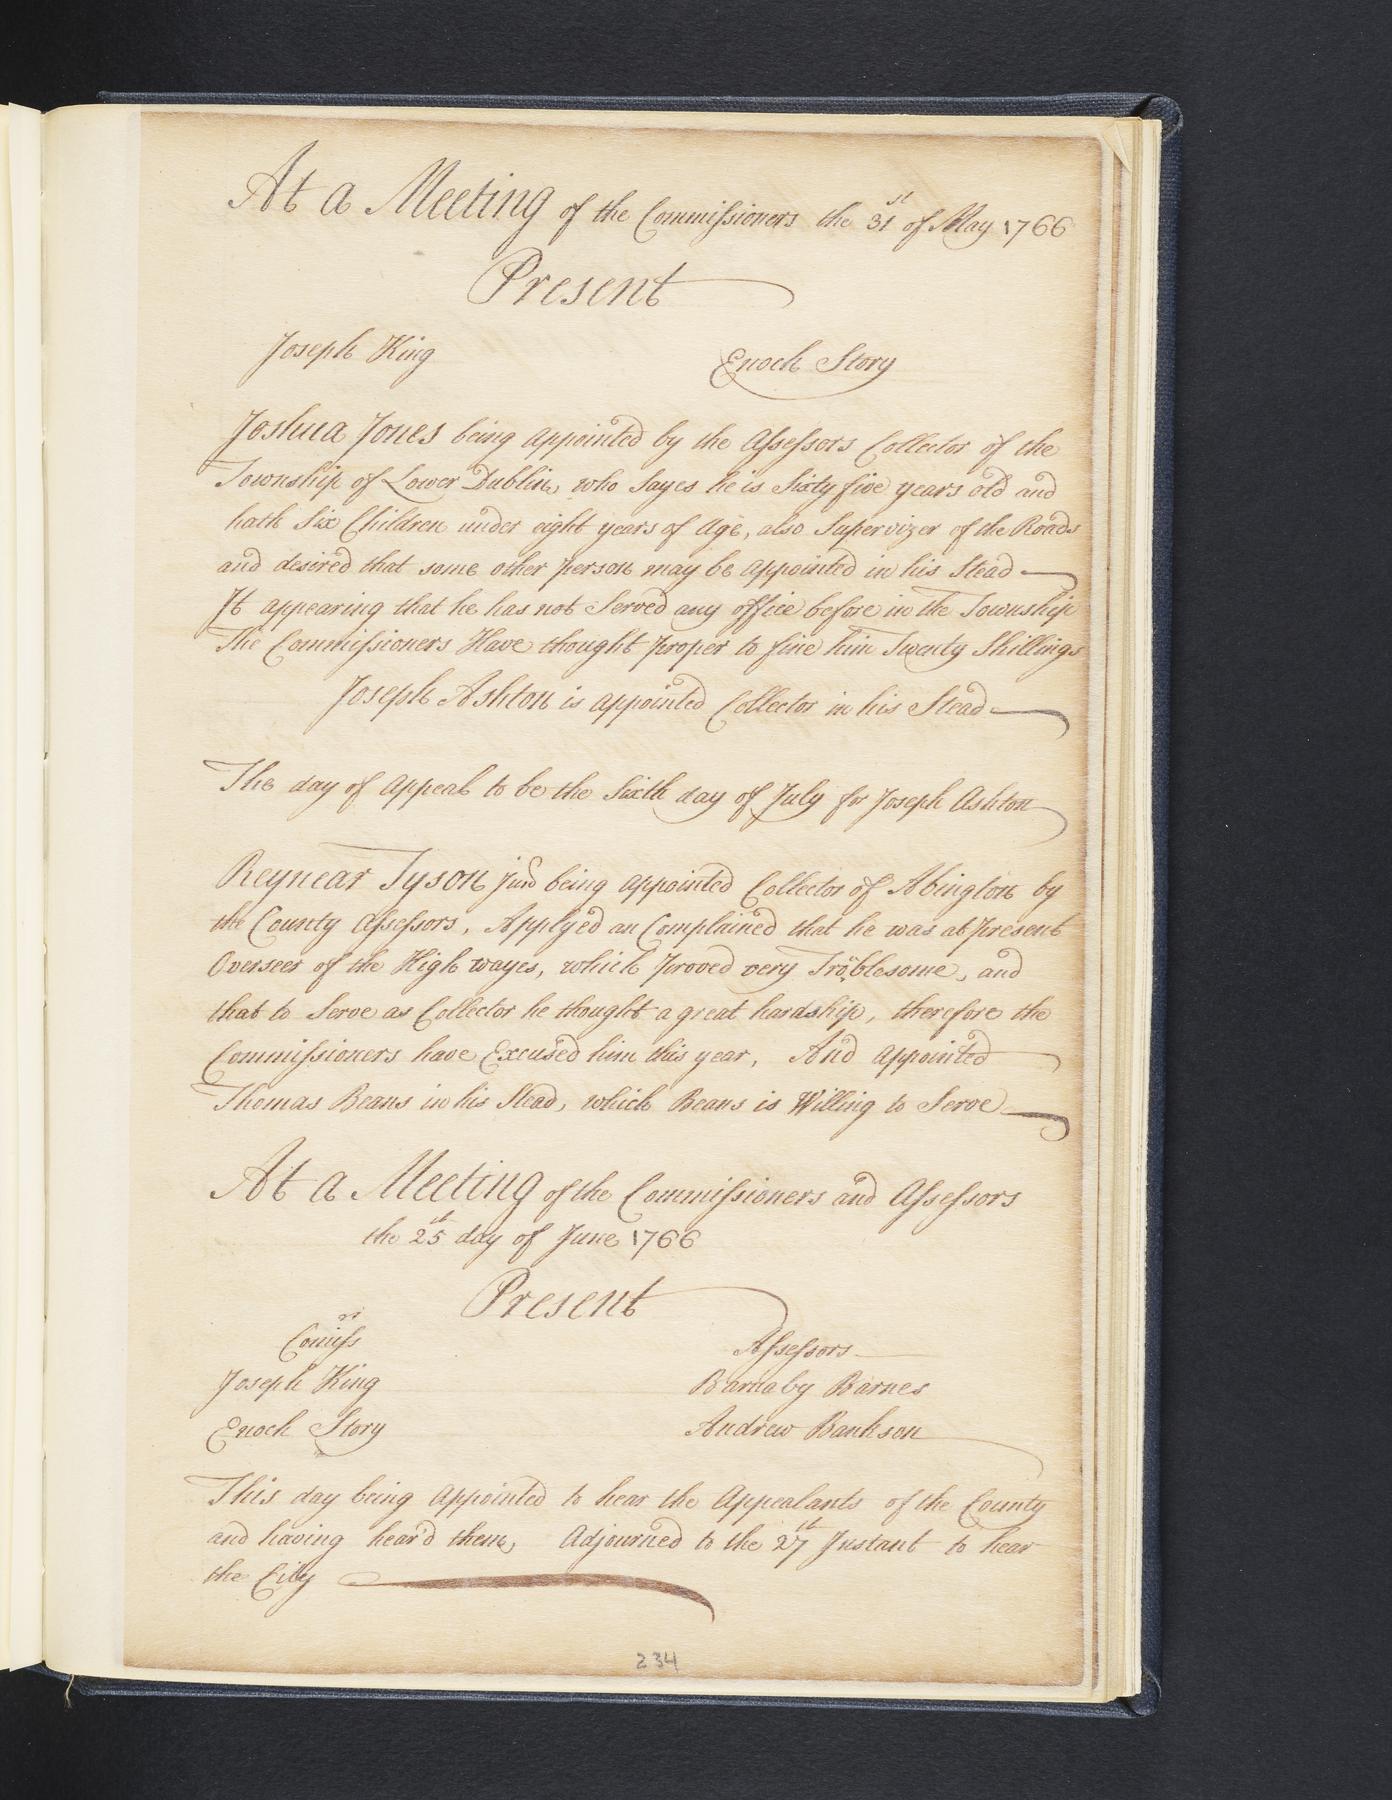 At a Meeting of the Commissioners the 31st of May 1766
Present
Joseph King Enoch Story
Joshua Jones being appointed by the Assessors Collector of the
Township of Lower Dublin, who Sayes he is Sixty five years old and
hath Six Children under eight years of Age, also Supervizer of the Roads
and desired that some other person may be appointed in his Stead
It appearing that he has not Served any office before in the Township
The Commissioners Have thought proper to fine him Twenty Shillings
Joseph Ashton is appointed Collector in his Stead
The day of appeal to be the Sixth day of July for Joseph Ashton
Reynear Tyson Junr being appointed Collector of Abington by
the County Assessors, Applyed an Complained that he was at present
Overseer of the High wayes, which proved very Troblesome, and
that to Serve as Collector he thought a great hardship, therefore the
Commissioners have Excused him this year, And appointed
Thomas Beans in his Stead, which Beans is Willing to Serve
At a Meeting of the Commissioners and Assessors
the 25th day of June 1766
Present
Comissrs Assessors
Joseph King Barnaby Barnes
Enoch Story Andrew Bankson
This day being Appointed to hear the Appealants of the County
and having hear'd them, Adjourned to the 27th Instant to hear
the City
234